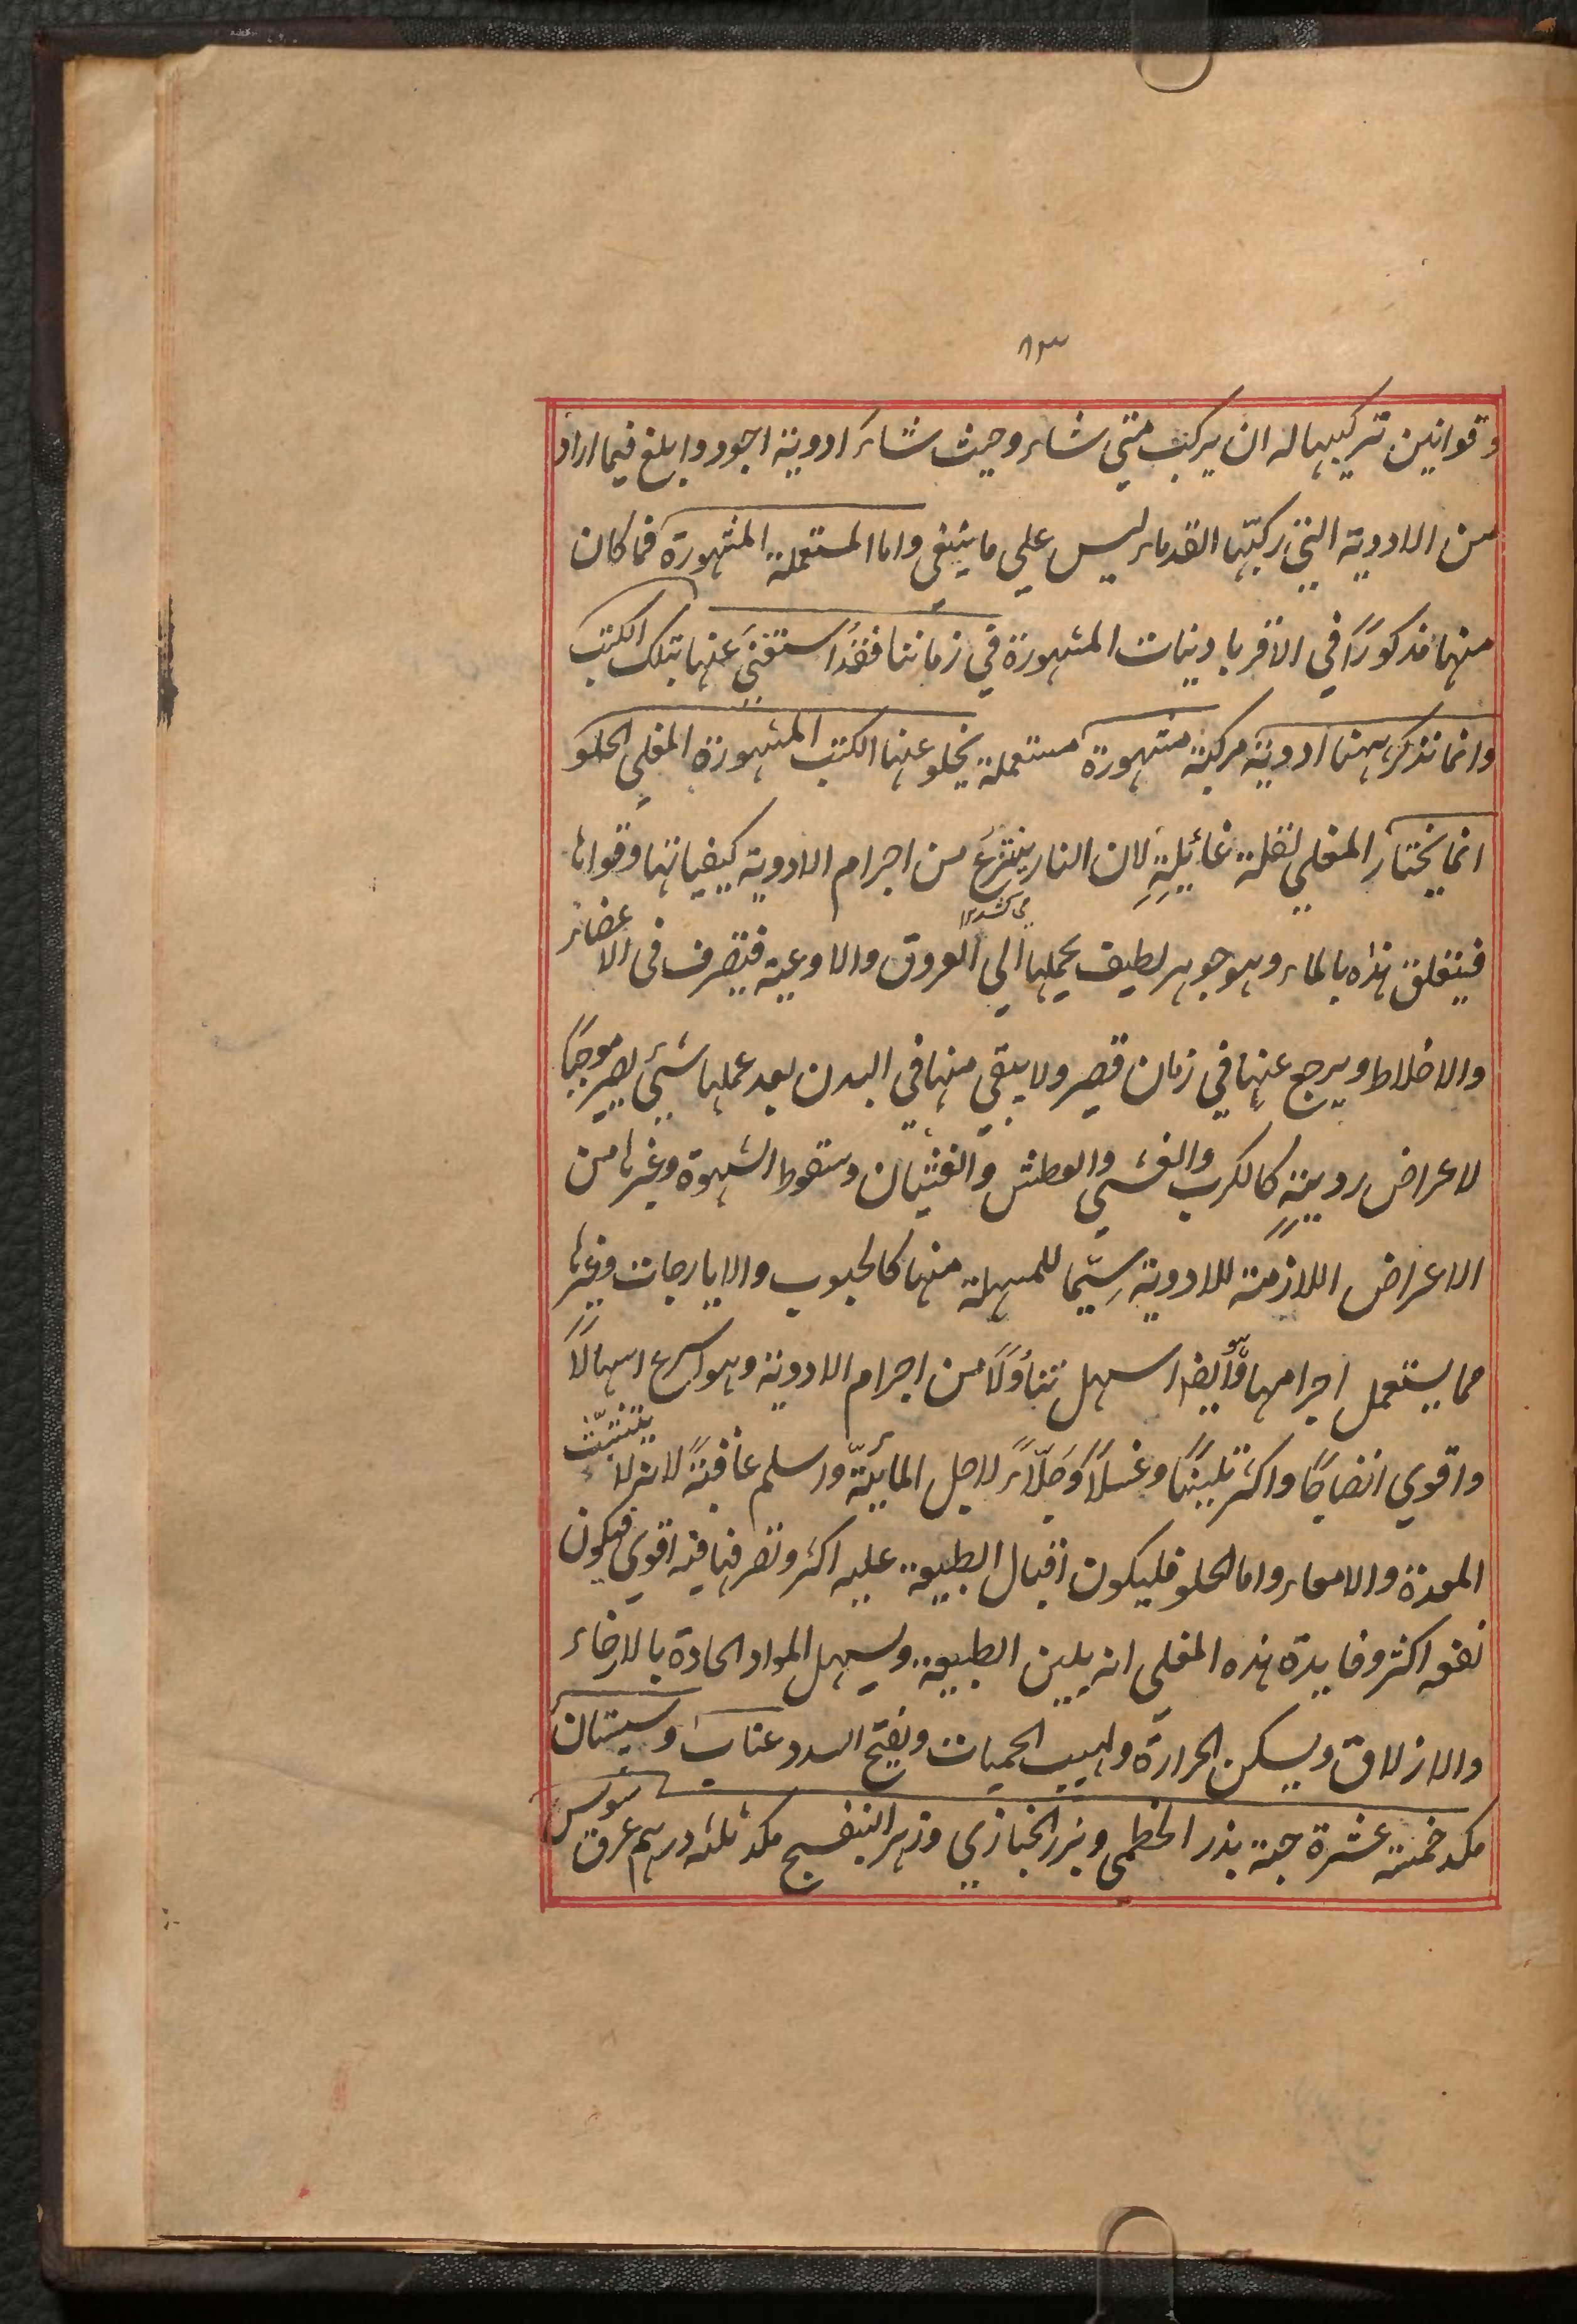 ٨٣
وقوانين تركيبها له ان يركب متي شاء وحيث شاء ادوية اجود وابلغ فيما اراد
من الادوية التي ركبّها القدماء ليس علي ما ينبغي واما المستعملة المشهورة فما كان
منها مذكورًا في الاقرباد ينات المشهورة في زماننا فقد استغني عنها بتلك الكتب
وانما نذكر ههنا ادوية مركبة مشهورة مستعملة يخلو عنها الكتب المشهورة المغلي الحلو
انما يختار المغلي لقلة غائيلةِ لان النار ينتزع من اجرام الادوية كيفياتها وقواها
فيتعلق هذه بالماء وهو جوهر لطيف يحملها الي العروق والاوعية فيتصرف في الاعضاء
والاخلاط ويرجع عنها في زمان قصير ولا يبقي منها في البدن بعد عملها شئ يصير موجبًا
لاعراض رديةٍ كالكرب والغشي والعطش والغثيان وسقوط الشهوة وغيرها من
الاعراض اللازمة للادوية سيّما للمسهلة منها كالحبوب والايارجات وغيرها
مما يستعمل اجرامها وأيضا هو اسهل تناوُلًا من اجرام الادوية وهو اسرع اسهالًا
واقوي انضاجًا واكثر تليينًا وغسلًا وجَلّاءً لاجل المائيّة واسلم عاقبةً لانه لا يتشبّث
المعدة والامعاء واما الحلو فليكون اقبال الطبيعة عليه اكثر وتصرفها فيه اقوي فيكون
نفعه اكثر وفايدة هذه المغلي انه يلين الطبيعة ويسهل المواد الحادة بالارخاء
والازلاق ويسكن الحرارة ولهيب الحميات ويفتح السدد عناب وسپستان
مكد خمسة عشرة حبة بذر الخطمي وبزر الخبازي وزهر البنفسج مكد ثلثه درهم عرق سوس